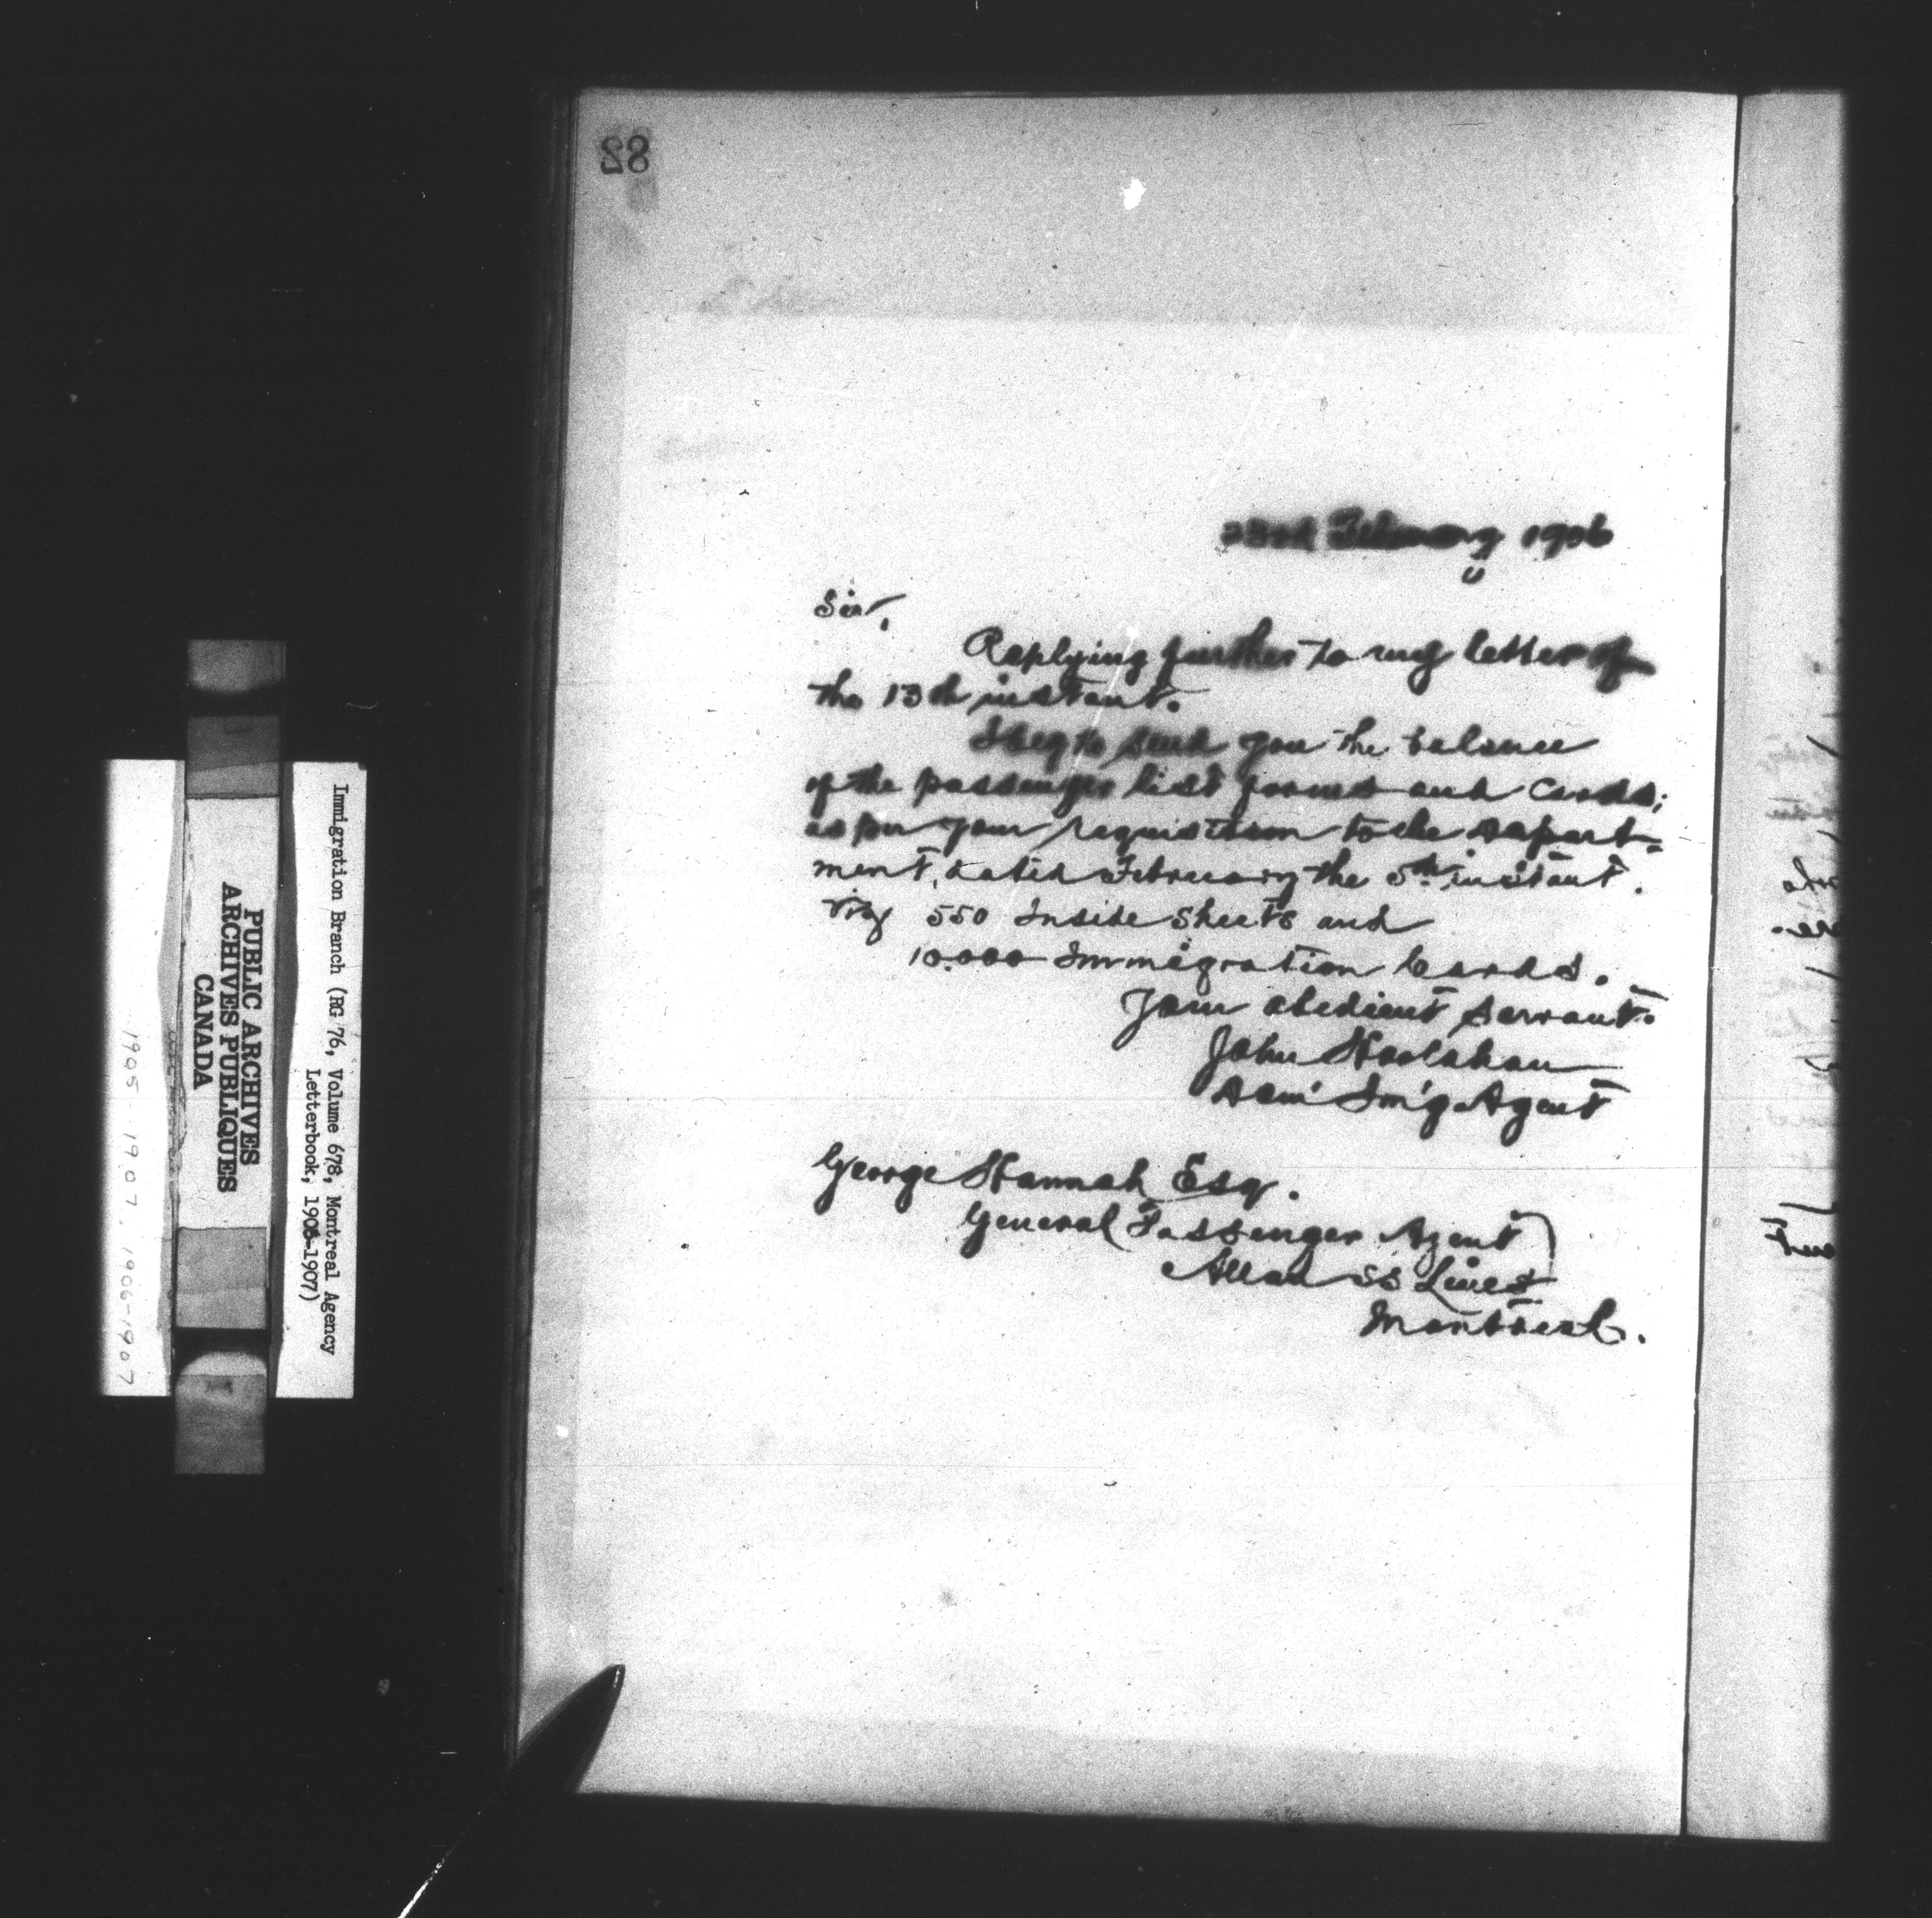 82
23rd February 1906
Sir,
Replying further to my letter of
the 13th instant.
I beg to send you the balance
of the passenger list forms and cards;
as per your requisition to the depart-
ment, dated February the 5th instant.
Viz 550 Inside Sheets and
10.000 Immigration Cards.
Your obedient servant.
John Hoolahan
Dom' Im'g Agent
George Hannah Esq.
General Passenger Agent
Allan SS Lines
Montreal.
Immigration Branch (RG 76, Volume 678, Montreal Agency
Letterbook, 1906-1907)
PUBLIC ARCHIVES
ARCHIVES PUBLIQUES
CANADA
1905-1907, 1906-1907